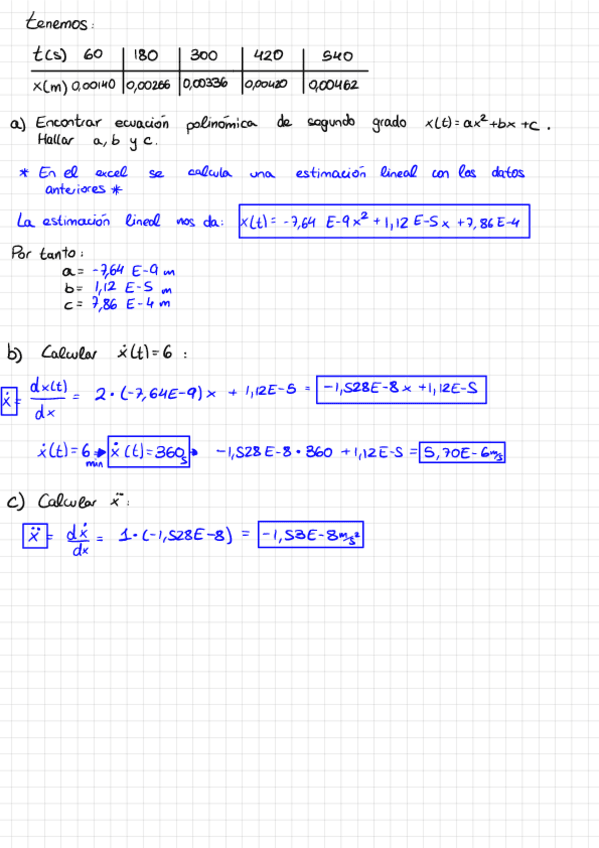 tenemos:
t(s) 60 180 300 420 540
x(m) 0,00140 0,00266 0,00336 0,00420 0,00462
a) Encontrar ecuación polinómica de segundo grado x(t)=ax²+bx+c.
Hallar a, b y c.
* En el excel se calcula una estimación lineal con los datos
anteriores *
La estimación lineal nos da: x(t)= -7,64 E-9x² + 1,12 E-5x + 7,86 E-4
Por tanto:
a= -7,64 E-9 m
b= 1,12 E-5 m
c= 7,86 E-4 m
b) Calcular ẋ(t)=6 :
ẋ = dx(t)/dx = 2·(-7,64E-9)x + 1,12E-5 = -1,528E-8x +1,12E-5
ẋ(t)=6 min → ẋ(t)=360 s → -1,528E-8·360 +1,12E-5 = 5,70E-6 m/s
c) Calcular ẍ:
ẍ = dẋ/dx = 1·(-1,528E-8) = -1,53E-8 m/s²